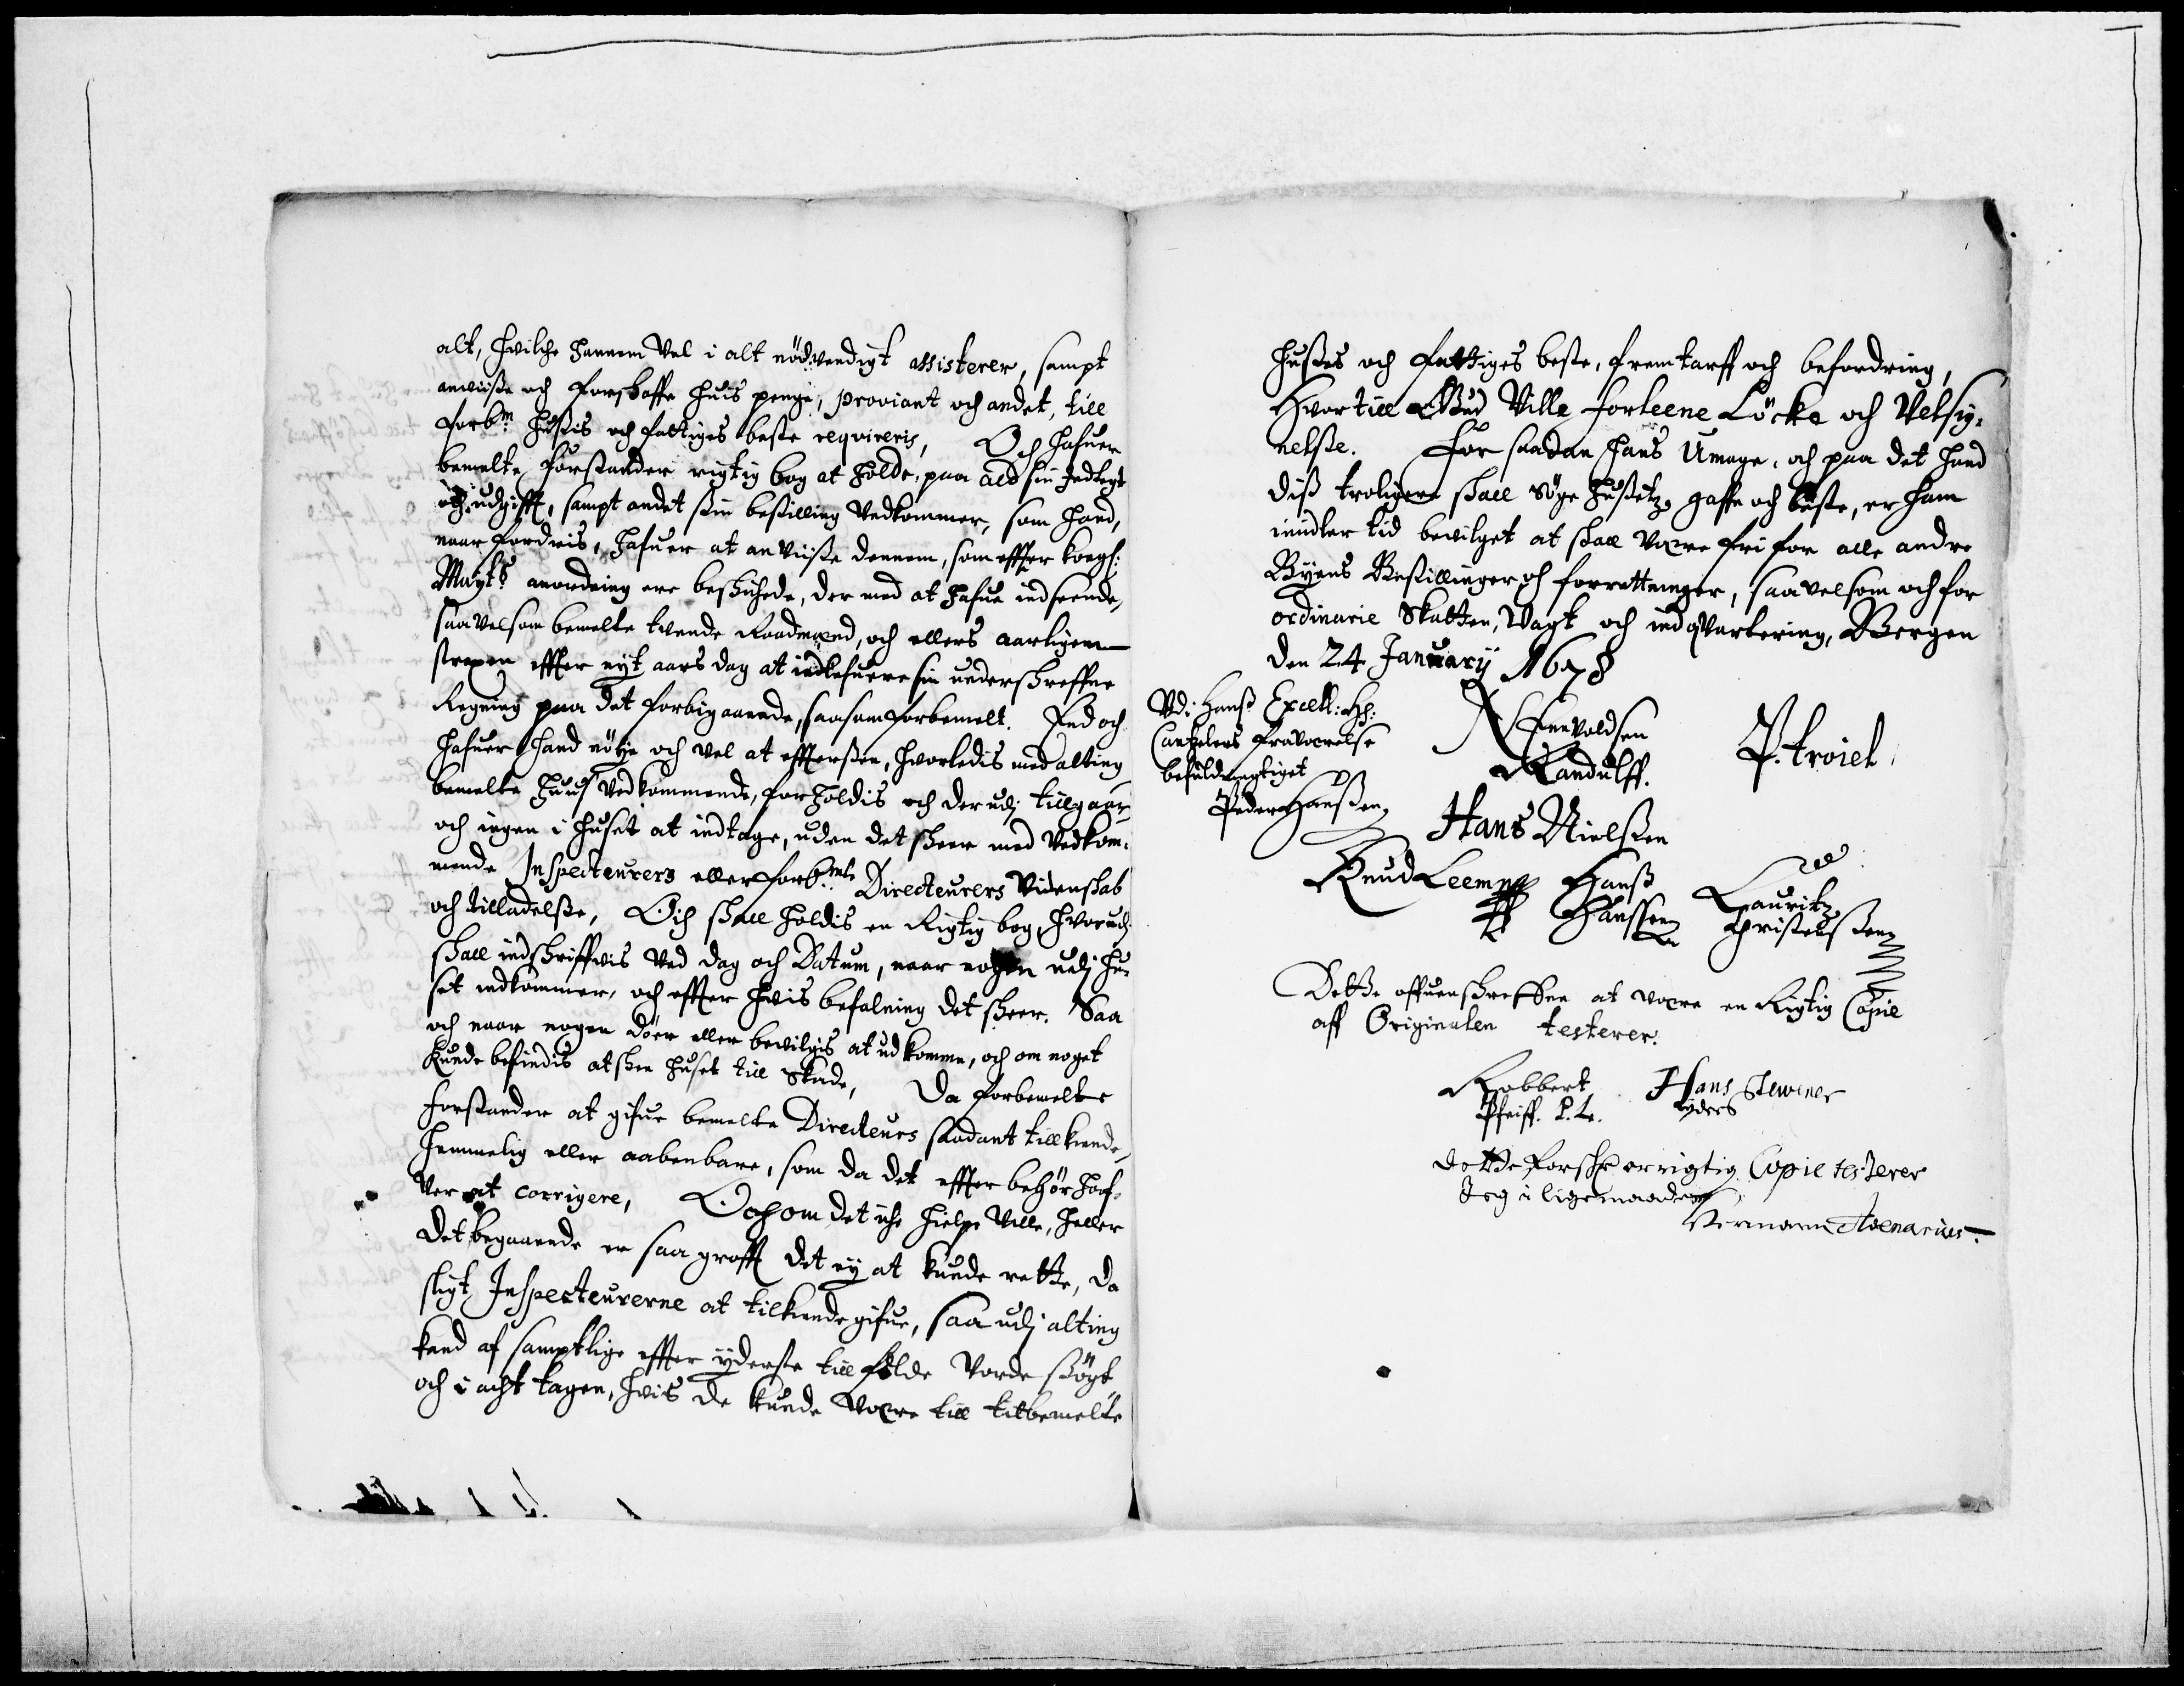 alt, hvilche hannem vel i alt nödvendigt assisterer, sampt
anviisse och forskaffe huis penge, proviant och andet, till
forb:m hussis och fattiges beste reqvireris, Och hafuer
bemelte forstander rigtig bog at holde, paa ald sin Indtegt
och udgifft, sampt andet sin bestilling vedkommer, som hand,
naar fordris, hafuer at anviisse dennem, som effter kongl:
Mayts anordning ere beskichede, der med at hafue indseende,
saavelsom bemelte tvende Raadmænd, och ellers aarligen
straxen effter nyt aars dag at indlefuere sin underschreffne
Regning paa det forbigaaende, saasom forbemelt. End och
hafuer hand nöye och vel at effterssee, hvorledis med alting
bemelte huus vedkommende, forholdis och der udj tillgaar,
och ingen i huset at indtage, uden det skeer med vedkom-
mende Inspecteurers eller forb:mte Directeurers videnskab
och tilladelsse, Och skall holdis en Rigtig bog, hvorudj
skall indskriffvis ved dag och Datum, naar nogen udj hu-
set indkommer, och effter hvis befalning det skeer. Saa
och naar nogen döer eller bevilgis at udkomme, och om noget
kunde befindis at skee huset till Skade, Da forbemelte
forstander at gifue bemelte Directeurs saadant tillkiende,
hemmelig eller aabenbare, som da det effter behör haf-
ver at corrigere, Och om det iche hielpe ville, heller
det begaaende er saa grofft det ey at kunde rette, da
sligt Inspecteurerne at tilkiende gifue, saa udj alting
kand af samptlige effter yderste till földe vorde ssögt
och i acht tagen, hvis de kunde være till titbemelte
husses och fattiges beste, fremtarff och befordring,
Hvor till Gud ville forleene Löcke och velsig-
nelsse. For saadan hans Umage, och paa det hand
diss troligere skall söge hussetz gaffn och beste, er ham
imidler tid bevilget at skall være fri for alle andre
Byens Bestillinger och forretninger, saavelsom och for
ordinarie Skatter, Vagt och indqvartering, Bergen
den 24 January 1678
Vdi Hanss Excell: Hh:
Cantzelers fraværelse
befuldmegtiget
Peder Hanssen
N Envoldsen
Randulff.
P. troiel
Hans Nielssen
Knud Leem
Hanss
Hanssen
Lauritz
Christenssen
Dette offuenskreffne at være en Rigtig Copie
aff Originalen testerer.
Robbert
Pfeiff.
Hans Stewener
dette forschr er rigtig Copie testerer
Jeg i ligemaade
Hermann Avenarius